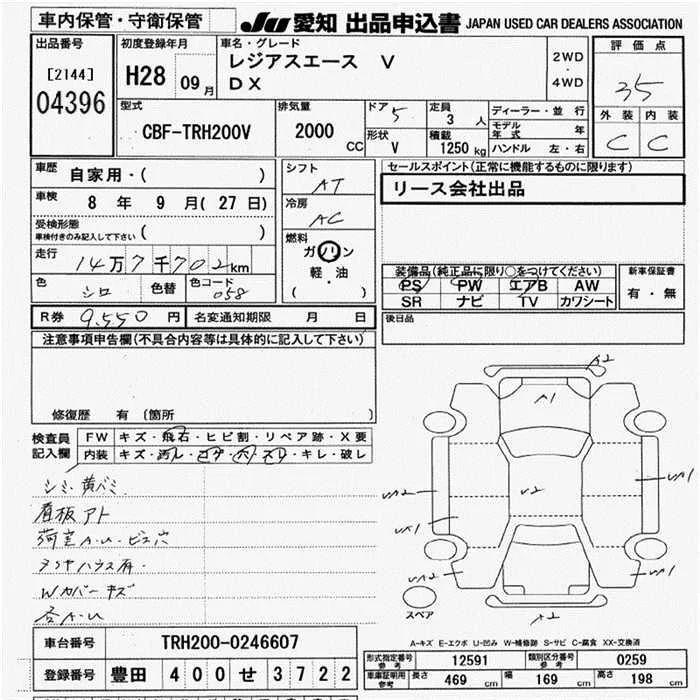 車内保管・守衛保管
JU 愛知 出品申込書 JAPAN USED CAR DEALERS ASSOCIATION
出品番号
[2144]
04396
初度登録年月
H28 09月
車名・グレード
レジアスエース V
DX
2WD
・
4WD
評価点
3.5
外装 内装
C C
型式
CBF-TRH200V
排気量
2000 CC
ドア 5
定員 3 人
形状 V
積載 1250 kg
ディーラー・並行
モデル年式 年
ハンドル 左・右
車歴 自家用・( )
車検 8 年 9 月( 27 日)
受検形態
車検付きのみ記入して下さい ( )
走行 14万7千702km
色 シロ 色替 色コード 058
シフト AT
冷房 AC
燃料
ガソリン
軽・油
( )
セールスポイント(正常に機能するものに限ります)
リース会社出品
装備品(純正品に限り○をつけてください)
PS PW エアB AW
SR ナビ TV カワシート
新車保証書
有・無
R券 9,550 円 名変通知期限 月 日
後日品
注意事項申告欄(不具合内容等は具体的に記入して下さい)
修復歴 有 (箇所
検査員記入欄
FW キズ・飛石・ヒビ割・リペア跡・X要
内装 キズ・汚レ・コゲ・穴・スレ・キレ・破レ
シミ 黄バミ
看板アト
荷室A・U・ビス穴
Wカバーキズ
各A・U
A2
A1
U2
A2
スペア
A-キズ E-エクボ U-凹み W-補修跡 S-サビ C-腐食 XX-交換済
車台番号 TRH200-0246607
登録番号 豊田 400 せ 3722
形式指定番号 参考 12591 類別区分番号 参考 0259
車庫証明用 参考 長さ 469 cm 幅 169 cm 高さ 198 cm